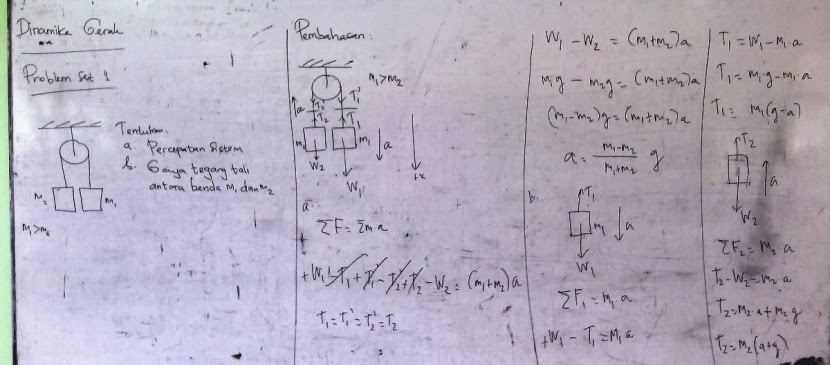 Dinamika Gerak
Problem Set 1
Tentukan
a. Percepatan Sistem
b. Gaya tegang tali
antara benda M₁ dan M₂
M₂
M₁
M₁>M₂
Pembahasan:
M₁>M₂
T₁'
a
T₂
T₁
M₁
a
W₂
W₁
+x
a.
ΣF = Σm a
+W₁ - T₁ + T₁' - T₂' + T₂ - W₂ = (m₁+m₂) a
T₁ = T₁' = T₂' = T₂
W₁ - W₂ = (m₁+m₂)a
m₁g - m₂g = (m₁+m₂)a
(m₁-m₂)g = (m₁+m₂)a
a = m₁-m₂ / m₁+m₂ g
b.
T₁
M₁
a
W₁
ΣF₁ = m₁ a
+W₁ - T₁ = m₁ a
T₁ = W₁ - m₁ a
T₁ = m₁ g - m₁ a
T₁ = m₁ (g-a)
T₂
a
W₂
ΣF₂ = m₂ a
T₂ - W₂ = m₂ a
T₂ = m₂ a + m₂ g
T₂ = m₂ (a+g)